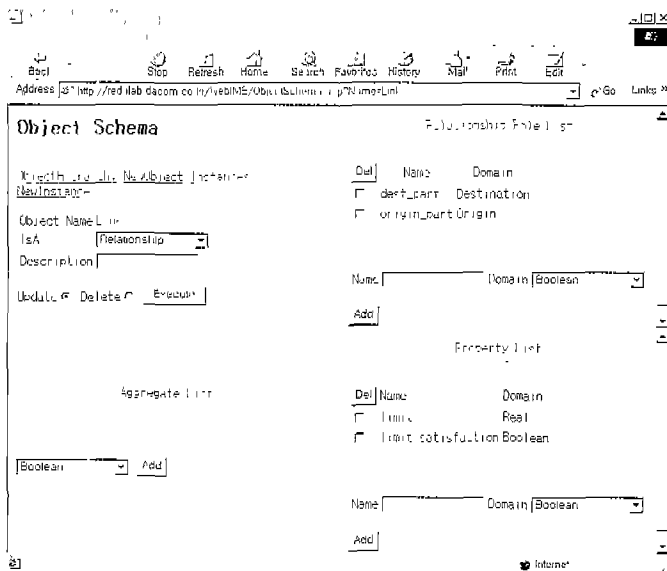 Stop Refresh Home Search Favorites History Mail Print Edit
Address Go Links »
Object Schema
NewObject
NewInstance
Object Name
IsA Relationship
Description
Update Delete Execute
Aggregate List
Boolean Add
Relationship Role List
Del Name Domain
dest_part Destination
origin_part Origin
Name Domain Boolean
Add
Property List
Del Name Domain
limit Real
limit satisfaction Boolean
Name Domain Boolean
Add
Internet